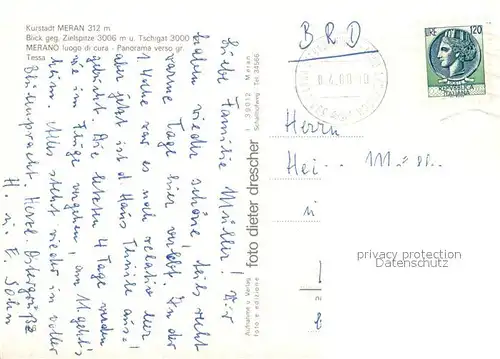 Kurstadt MERAN 312 m
Blick geg. Zielspitze 3006 m u. Tschigat 3000
MERANO luogo di cura - Panorama verso gr.
Tessa
BRD
LIRE 120
REPVBBLICA
ITALIANA
Liebe Familie Müller! Wir
haben wieder schöne teils recht
warme Tage hier verlebt. In der
1. Woche war es noch relativ leer
aber jetzt ist d. Haus Terinile aus-
gebucht. Die letzten 4 Tage werden
wie im Fluge vergehen, am 11. geht's
heim. Alles steht wieder in voller
Blütenpracht. Herzl. Ostergrüße
H. u. E. Sohn
Aufnahme u. Verlag
foto e edizione
foto dieter drescher
I 39012 Meran
Tel 34566
Herrn
Hei...
privacy protection
Datenschutz